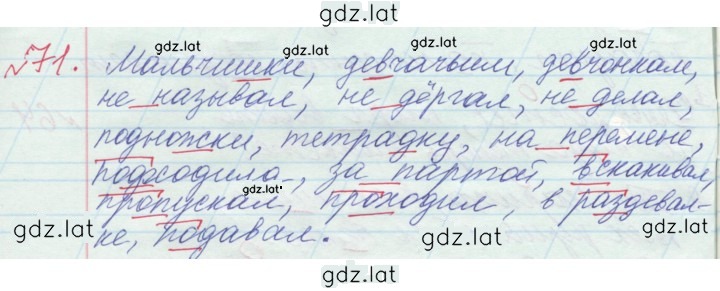 gdz.lat
gdz.lat gdz.lat gdz.lat
№71. Мальчишки, девчачьим, девчонкам,
не называл, не дёргал, не делал,
gdz.lat gdz.lat
подножки, тетрадку, на перемене,
подходила, за партой, вскакивал,
gdz.lat
пропускал, проходил, в раздевал-
gdz.lat gdz.lat gdz.lat
ке, подавал.
gdz.lat